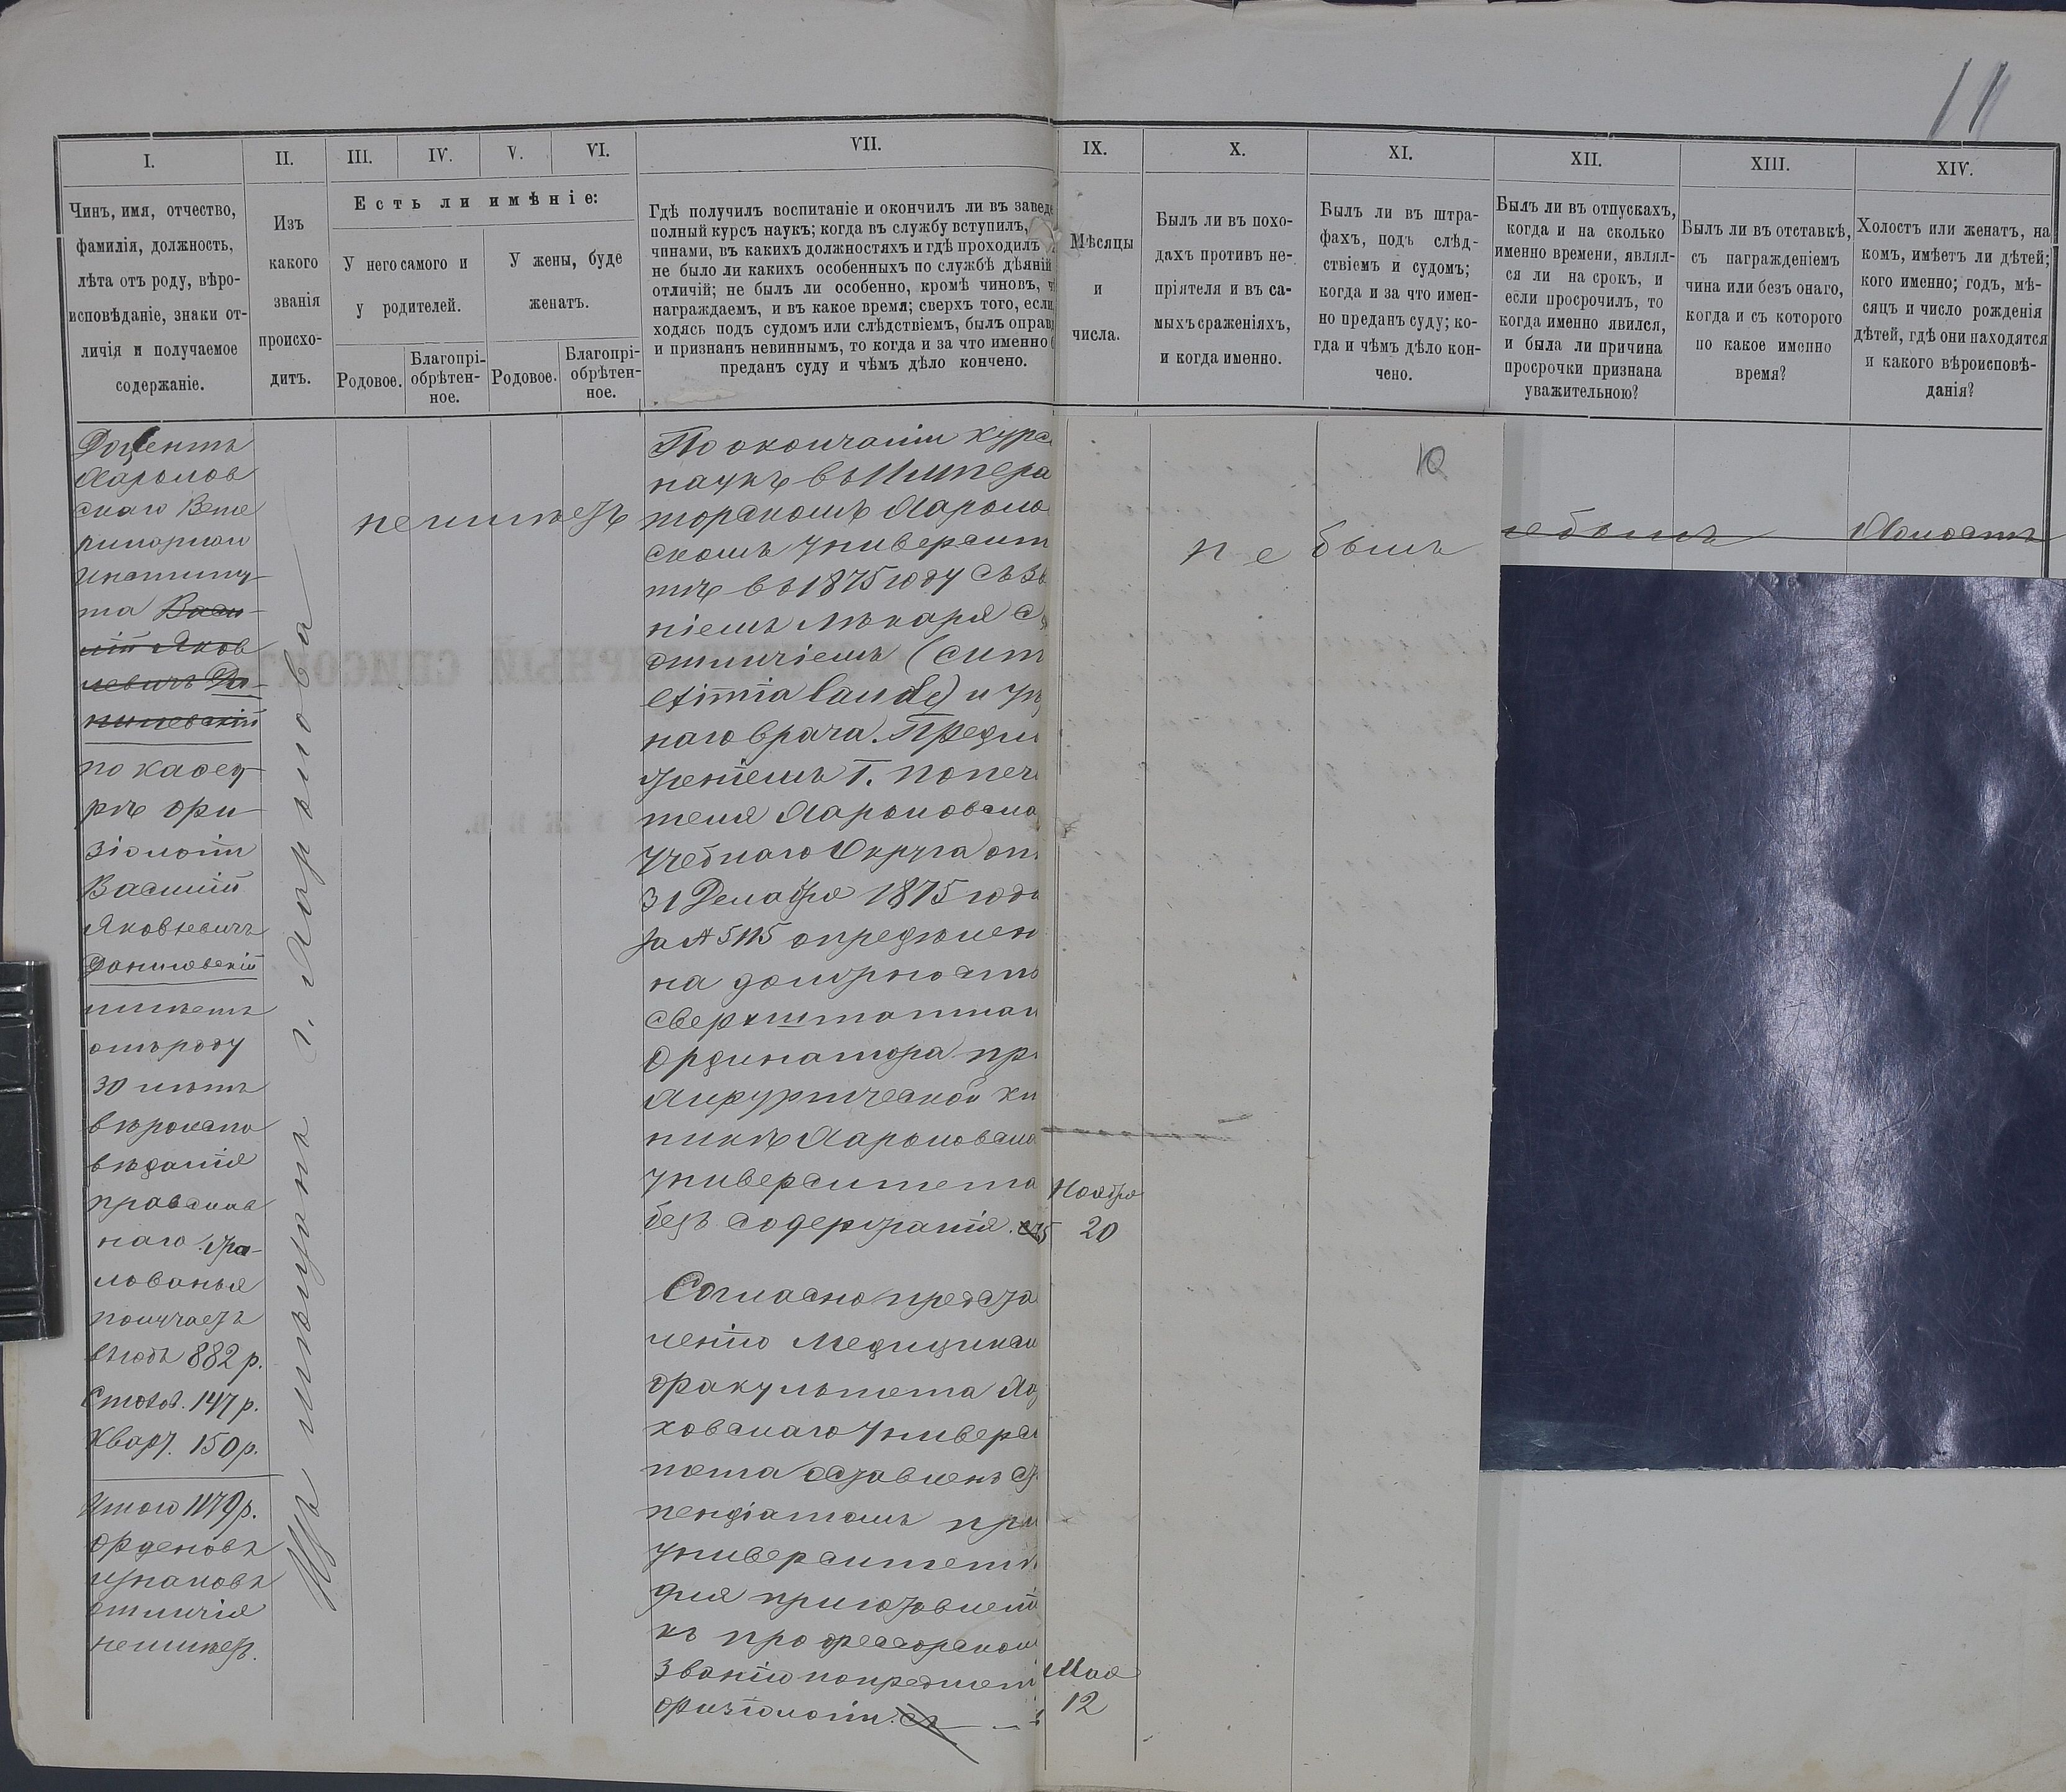 11
I.
II.
III.
IV.
V.
VI.
VII.
IX.
X.
XI.
XII.
XIII.
XIV.
Чинъ, имя, отчество,
фамилія, должность,
лѣта отъ роду, вѣро-
исповѣданіе, знаки от-
личія и получаемое
содержаніе.
Изъ
какого
званія
происхо-
дитъ.
Есть ли имѣніе:
У него самого и
у родителей.
У жены, буде
женатъ.
Родовое.
Благопрі-
обрѣтен-
ное.
Родовое.
Благопрі-
обрѣтен-
ное.
Гдѣ получилъ воспитаніе и окончилъ ли въ заведе
полный курсъ наукъ; когда въ службу вступилъ,
чинами, въ какихъ должностяхъ и гдѣ проходилъ
не было ли какихъ особенныхъ по службѣ дѣяній
отличій; не былъ ли особенно, кромѣ чиновъ, ч
награждаемъ, и въ какое время; сверхъ того, если,
ходясь подъ судомъ или слѣдствіемъ, былъ оправд
и признанъ невиннымъ, то когда и за что именно б
преданъ суду и чѣмъ дѣло кончено.
Мѣсяцы
и
числа.
Былъ ли въ похо-
дахъ противъ не-
пріятеля и въ са-
мыхъ сраженіяхъ,
и когда именно.
Былъ ли въ штра-
фахъ, подъ слѣд-
ствіемъ и судомъ;
когда и за что имен-
но преданъ суду; ко-
гда и чѣмъ дѣло кон-
чено.
Былъ ли въ отпускахъ,
когда и на сколько
именно времени, являл-
ся ли на срокъ, и
если просрочилъ, то
когда именно явился,
и была ли причина
просрочки признана
уважительною?
Былъ ли въ отставкѣ,
съ награжденіемъ
чина или безъ онаго,
когда и съ котораго
по какое именно
время?
Холостъ или женатъ, на
комъ, имѣетъ ли дѣтей;
кого именно; годъ, мѣ-
сяцъ и число рожденія
дѣтей, гдѣ они находятся
и какого вѣроисповѣ-
данія?
Доцентъ
Харьков
скаго Вете
ринарнаго
Институ-
та Васи-
лій Яков
левичъ Да-
нилевскій
по кафед-
рѣ фи-
зіологіи
Василій
Яковлевичъ
Данилевскій
имѣетъ
отъ роду
30 лѣтъ
вѣроиспо
вѣданія
православ
наго. Жа-
лованья
получаетъ
въ годъ 882 р.
Столов. 147 р.
Кварт. 150 р.
Итого 1179 р.
орденовъ
и знаковъ
отличія
не имѣетъ.
Изъ мѣщанъ г. Харькова
не имѣетъ
По окончаніи курса
наукъ въ Импера
торскомъ Харьков
скомъ Университ
тѣ въ 1875 году съ зв
ніемъ лѣкаря съ
отличіемъ (cum
eximia laude) и уѣз
наго врача. Предло
женіемъ Г. Попеч
теля Харьковска
Учебнаго Округа от
31 Декабря 1875 года
за № 5115 опредѣлен
на должность
сверхштатнаг
Ординатора пр
Хирургической кл
никѣ Харьковска
Университета
безъ содержанія. съ
Согласно предста
ленію Медицинск
факультета Ха
ковскаго Универс
тета оставленъ ст
пендіатомъ при
Университетѣ
для приготовлені
къ профессорском
званію по предмет
физіологіи. съ
Ноября
20
Мая
12
10
не былъ
не былъ
Холостъ